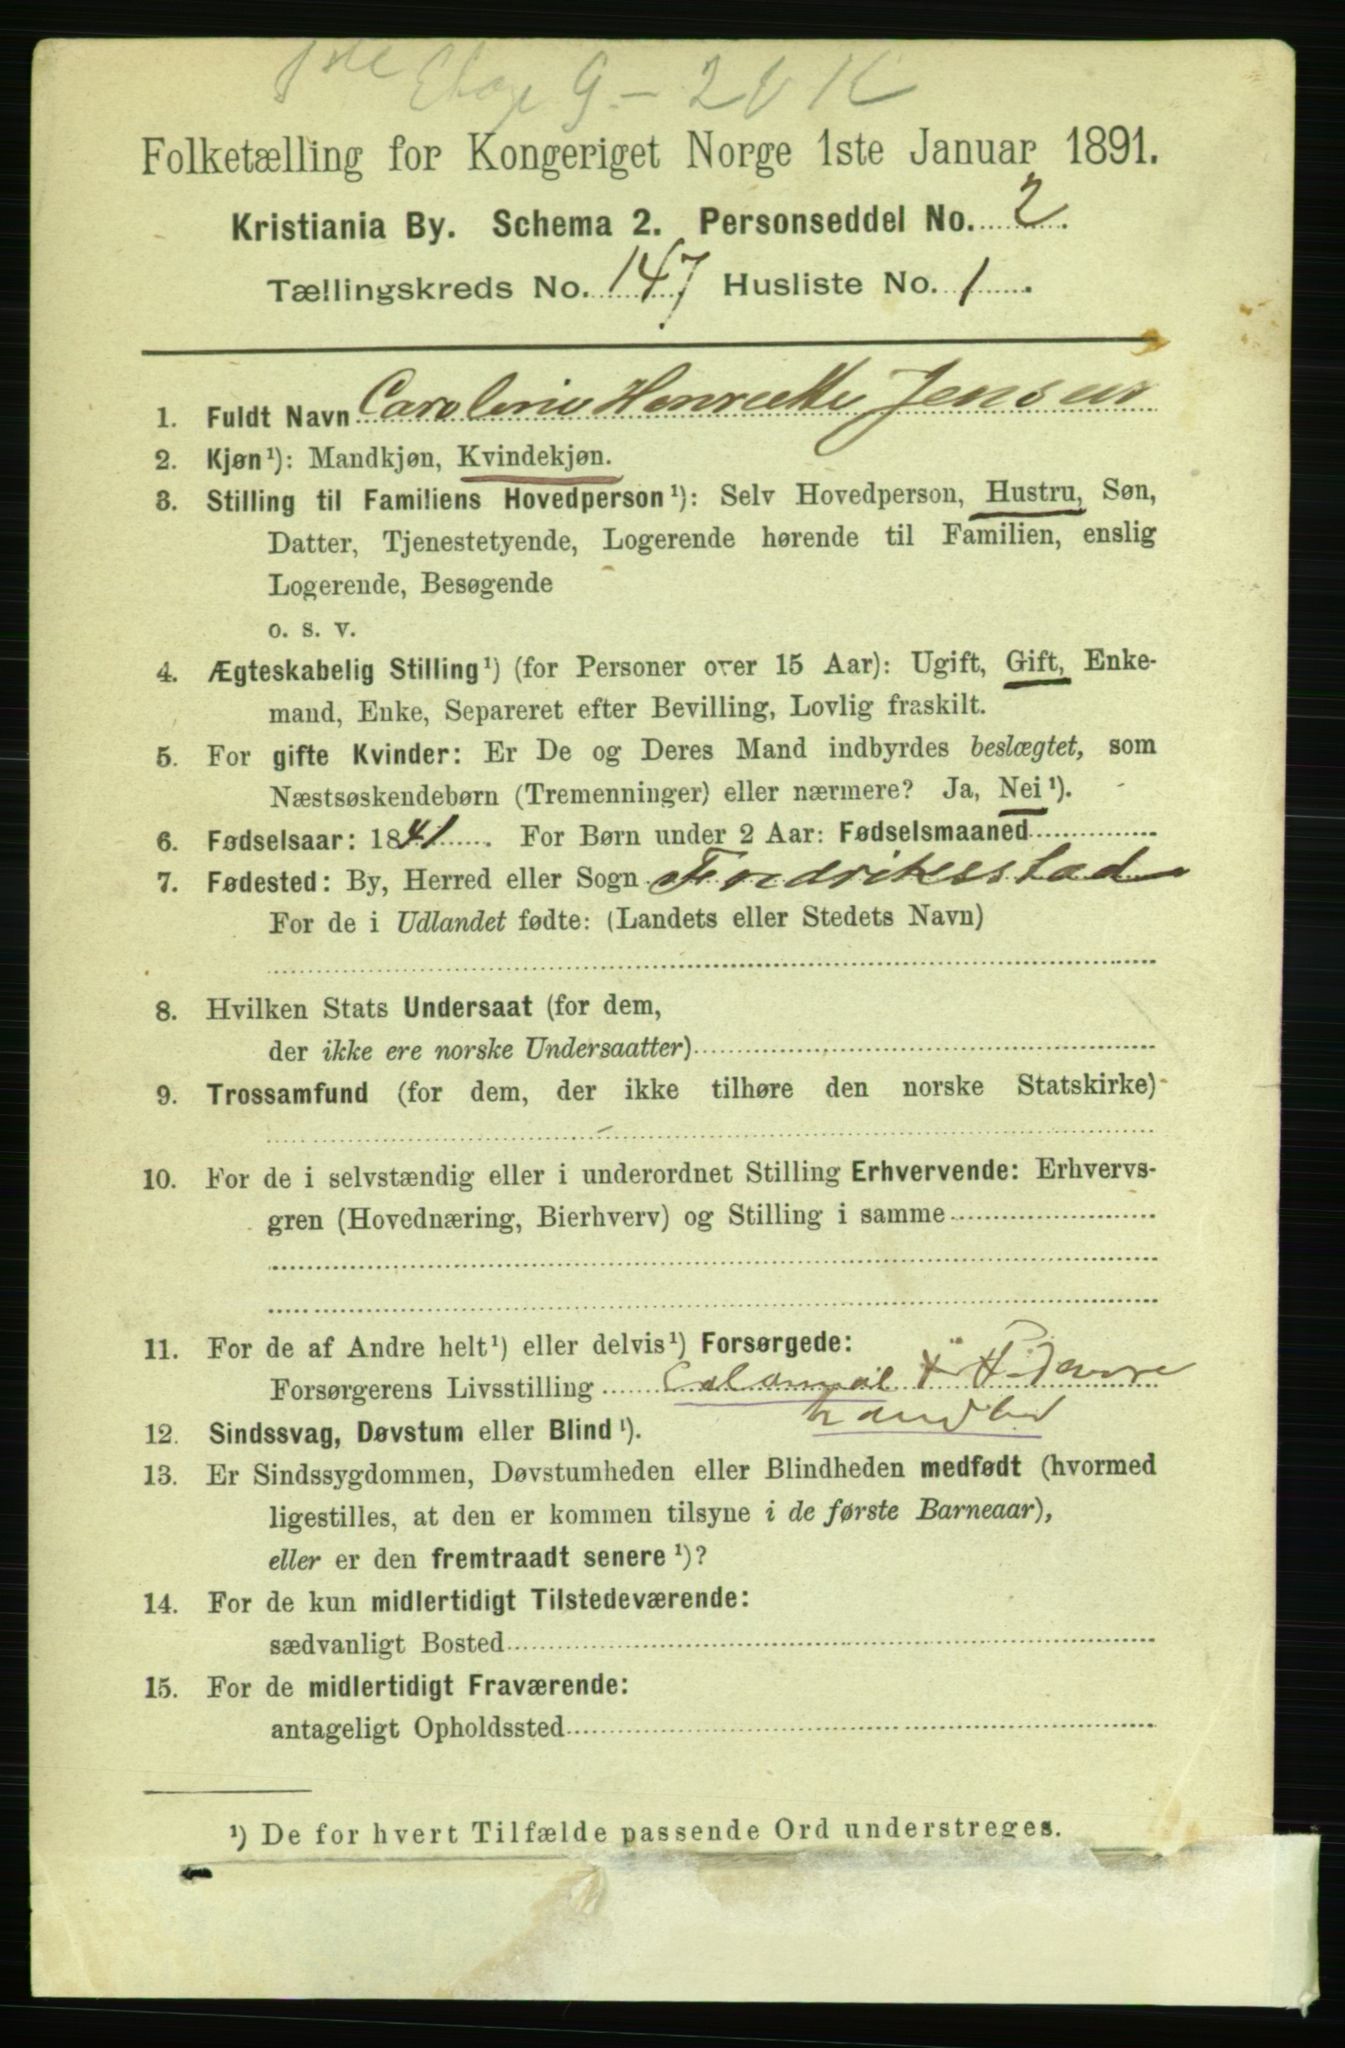 1ste Etage 9 - 2 V 1 K
Folketælling for Kongeriget Norge 1ste Januar 1891.
Kristiania By. Schema 2. Personseddel No. 2.
Tællingskreds No. 147 Husliste No. 1.
1. Fuldt Navn Caroline Henrette Jensen
2. Kjøn ¹): Mandkjøn, Kvindekjøn.
3. Stilling til Familiens Hovedperson ¹): Selv Hovedperson, Hustru, Søn,
Datter, Tjenestetyende, Logerende hørende til Familien, enslig
Logerende, Besøgende
o. s. v.
4. Ægteskabelig Stilling ¹) (for Personer over 15 Aar): Ugift, Gift, Enke-
mand, Enke, Separeret efter Bevilling, Lovlig fraskilt.
5. For gifte Kvinder: Er De og Deres Mand indbyrdes beslægtet, som
Næstsøskendebørn (Tremenninger) eller nærmere? Ja, Nei ¹).
6. Fødselsaar: 1841. For Børn under 2 Aar: Fødselsmaaned
7. Fødested: By, Herred eller Sogn Fredriksstad
For de i Udlandet fødte: (Landets eller Stedets Navn)
8. Hvilken Stats Undersaat (for dem,
der ikke ere norske Undersaatter)
9. Trossamfund (for dem, der ikke tilhøre den norske Statskirke)
10. For de i selvstændig eller i underordnet Stilling Erhvervende: Erhvervs-
gren (Hovednæring, Bierhverv) og Stilling i samme
11. For de af Andre helt ¹) eller delvis ¹) Forsørgede:
Forsørgerens Livsstilling
12. Sindssvag, Døvstum eller Blind ¹).
13. Er Sindssygdommen, Døvstumheden eller Blindheden medfødt (hvormed
ligestilles, at den er kommen tilsyne i de første Barneaar),
eller er den fremtraadt senere ¹)?
14. For de kun midlertidigt Tilstedeværende:
sædvanligt Bosted
15. For de midlertidigt Fraværende:
antageligt Opholdssted
¹) De for hvert Tilfælde passende Ord understreges.